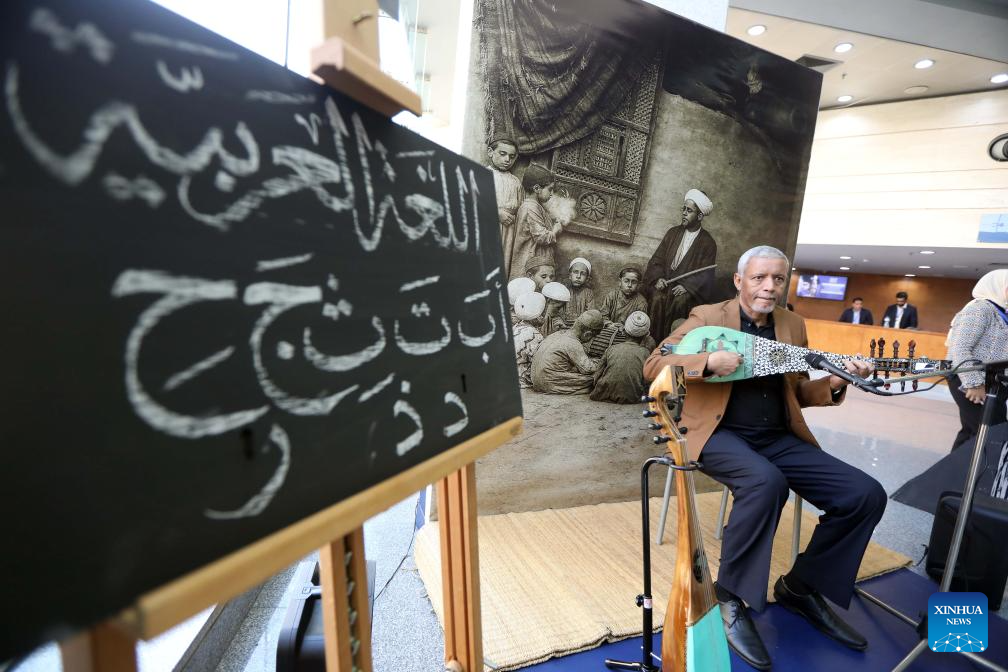 اللغة العربية
أ ب ت ث ج ح
د ذ ر
XINHUA
NEWS